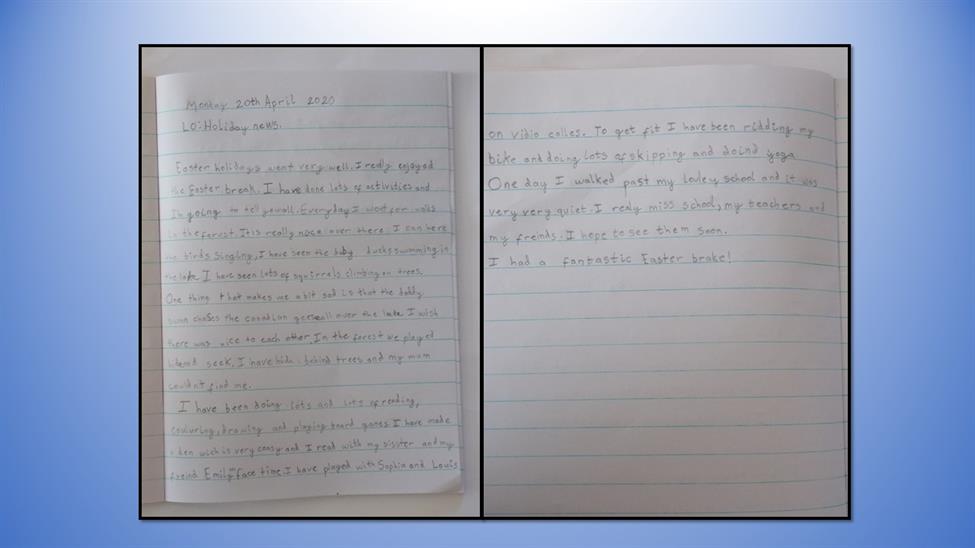 Monday 20th April 2020
LO: Holiday news.
Easter holidays went very well. I really enjoyed
the Easter break. I have done lots of activities and
I'm going to tell you all. Everyday I went for walks
in the forest. It is really nice over there. I can here
the birds singing, I have seen the baby ducks swimming in
the lake. I have seen lots of squirrels climbing on trees.
One thing that makes me a bit sad is that the daddy
swan chases the canadian geese all over the lake I wish
there was nice to each other. In the forest we played
seek. I have hide behind trees and my mum
couldn't find me.
I have been doing lots and lots of reading,
couluring, drawing and playing board games I have made
a den wich is very coasy and I read with my sisster and my
freind Emily on face time. I have played with Sophia and Louis
on vidio colles. To get fit I have been ridding my
bike and doing lots of skipping and doind yoga
One day I walked past my lovley school and it was
very very quiet. I realy miss school, my teachers and
my freinds. I hope to see them soon.
I had a fantastic Easter brake!